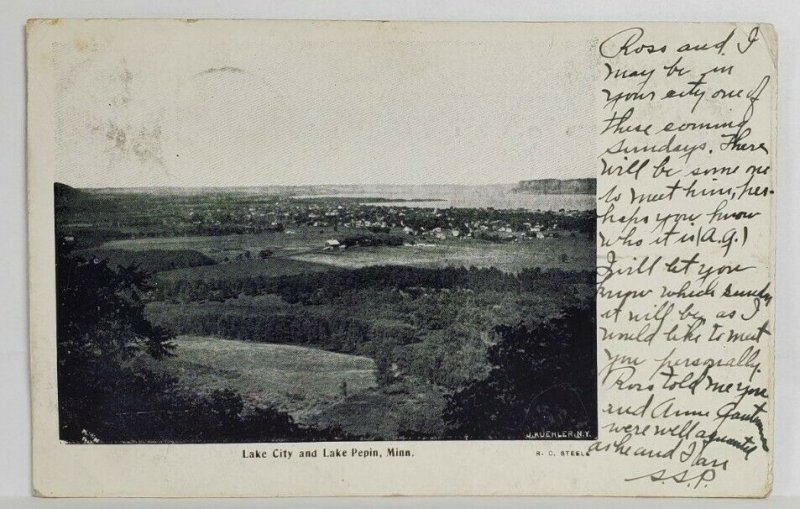 Ross and I
may be in
your city one of
these coming
Sundays. There
will be some one
to meet him, per-
haps you know
who it is (A.G.)
I will let you
know which Sunday
it will be, as I
would like to meet
you personally
Ross told me you
and Anne
were well acquainted
as he and I are
S.S.P.
J. KOEHLER, N.Y.
Lake City and Lake Pepin, Minn.
R. C. STEELE